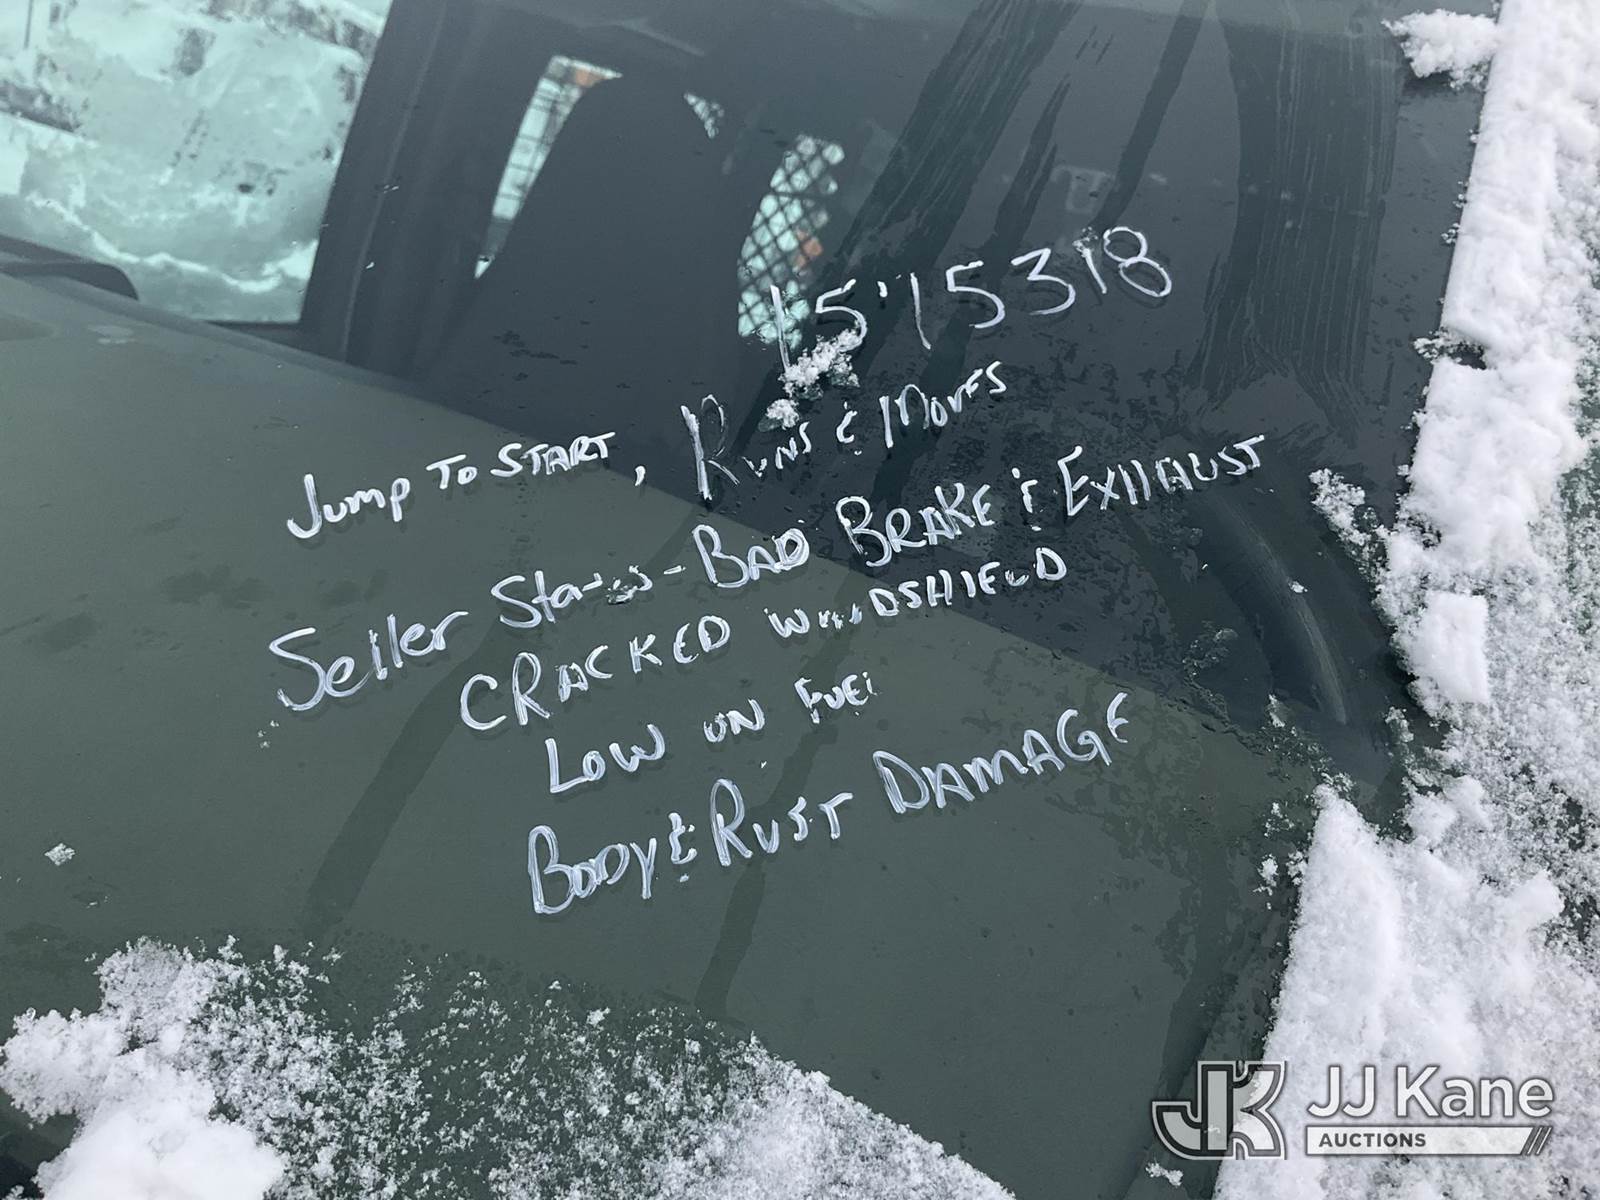 1515318
Jump To START, RUNS & MOVES
Seller States - BAD BRAKE & EXHAUST
CRACKED WINDSHIELD
LOW ON FUEl
BODY & RUST DAMAGE
JK JJ Kane
AUCTIONS